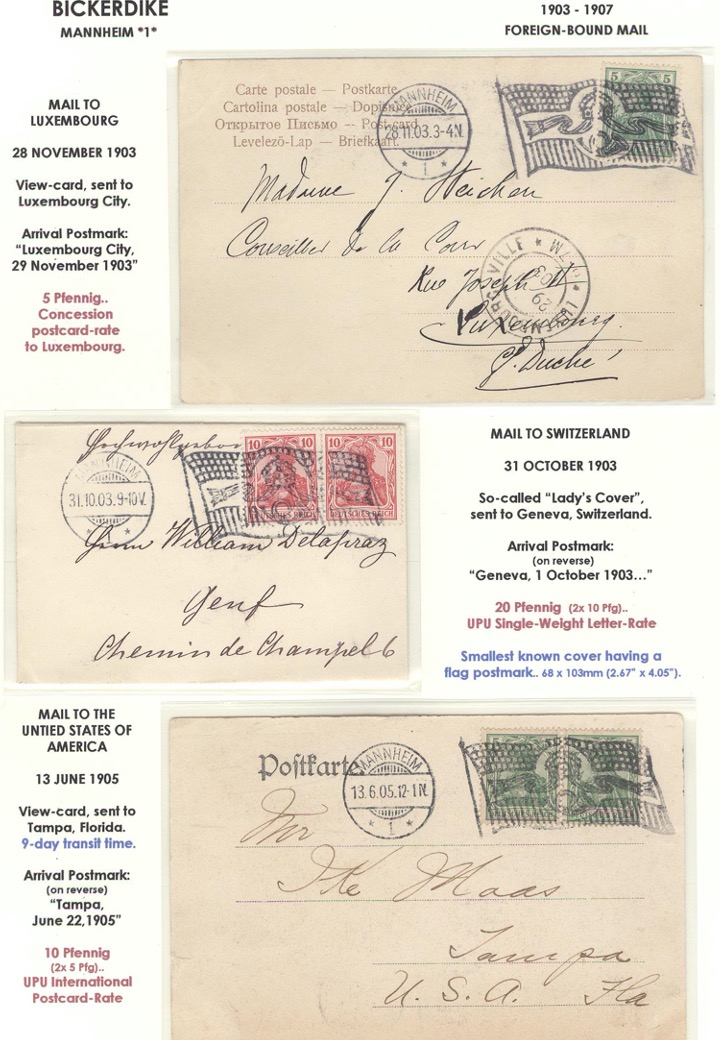 BICKERDIKE
MANNHEIM "1"
1903 - 1907
FOREIGN-BOUND MAIL
MAIL TO
LUXEMBOURG
28 NOVEMBER 1903
View-card, sent to
Luxembourg City.
Arrival Postmark:
"Luxembourg City,
29 November 1903"
5 Pfennig..
Concession
postcard-rate
to Luxembourg.
Carte postale — Postkarte
Cartolina postale — Dopisnice
Открытое Письмо — Post-card
Levelezö-Lap — Briefkaart
MANNHEIM
28.11.03.3-4N.
* 1 *
5 5
Madame J. Reichen
Conseiller de la Cour
Rue Joseph II
Luxembourg.
G. Duché
LUXEMBOURG VILLE
29
03
MANNHEIM
31.10.03.9-10V.
10 10
10 10
DEUTSCHES REICH
DEUTSCHES REICH
Hochwohlgebor
Herrn William Delapraz
Genf
Chemin de Champel 6
MAIL TO SWITZERLAND
31 OCTOBER 1903
So-called "Lady's Cover",
sent to Geneva, Switzerland.
Arrival Postmark:
(on reverse)
"Geneva, 1 October 1903..."
20 Pfennig (2x 10 Pfg)..
UPU Single-Weight Letter-Rate
Smallest known cover having a
flag postmark.. 68 x 103mm (2.67" x 4.05").
MAIL TO THE
UNTIED STATES OF
AMERICA
13 JUNE 1905
View-card, sent to
Tampa, Florida.
9-day transit time.
Arrival Postmark:
(on reverse)
"Tampa,
June 22,1905"
10 Pfennig
(2x 5 Pfg)..
UPU International
Postcard-Rate
Postkarte
MANNHEIM
13.6.05.12-1N.
* 1 *
Mr
Ike Maas
Tampa
U.S.A. Fla